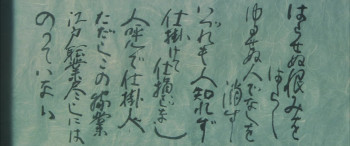 はらせぬ恨みを
はらし
ゆるせぬ人でなしを
消す
いづれも人知れず
仕掛けて仕損じなし
人呼んで仕掛人
ただしこの稼業
江戸職業づくしには
のっていない